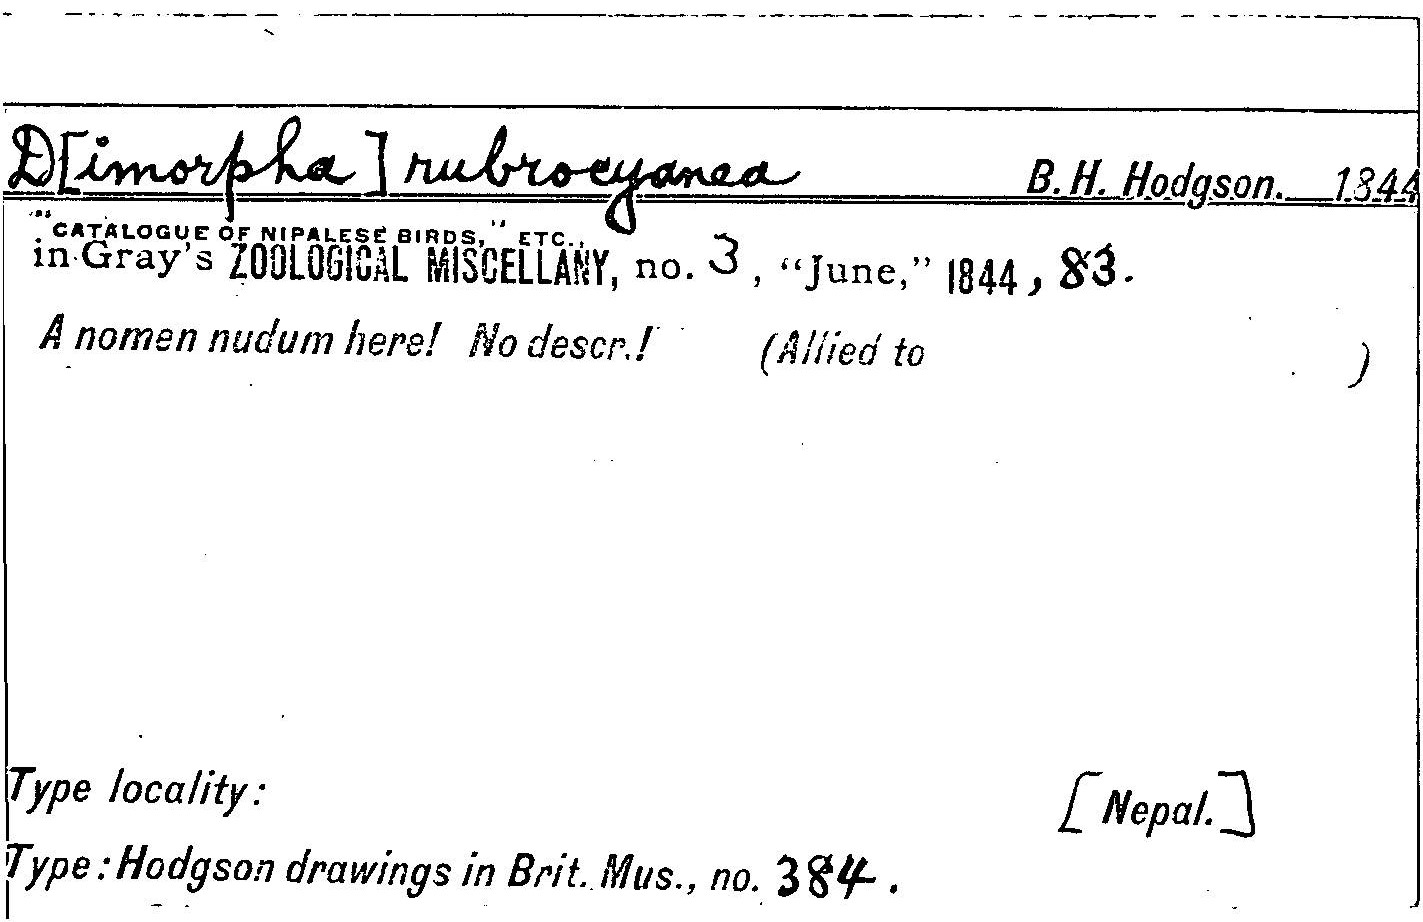 D[imorpha] rubrocyanea B. H. Hodgson. 1844
"CATALOGUE OF NIPALESE BIRDS," ETC.,
in Gray's ZOOLOGICAL MISCELLANY, no. 3, "June," 1844, 83.
A nomen nudum here! No descr.! (Allied to )
Type locality: [Nepal.]
Type: Hodgson drawings in Brit. Mus., no. 384.